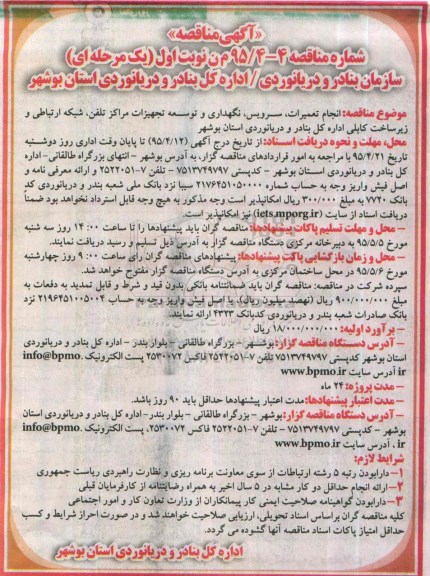 «آگهی مناقصه»
شماره مناقصه ۴-۹۵/۴ م ن نوبت اول (یک مرحله ای)
سازمان بنادر و دریانوردی / اداره کل بنادر و دریانوردی استان بوشهر
موضوع مناقصه: انجام تعمیرات، سرویس، نگهداری و توسعه تجهیزات مراکز تلفن، شبکه ارتباطی و
زیرساخت کابلی اداره کل بنادر و دریانوردی استان بوشهر
محل، مهلت و نحوه دریافت اسناد: از تاریخ درج آگهی (۹۵/۴/۱۲) تا پایان وقت اداری روز دوشنبه
تاریخ ۹۵/۴/۲۱ با مراجعه به امور قراردادهای مناقصه گزار، به آدرس بوشهر - انتهای بزرگراه طالقانی- اداره
کل بنادر و دریانوردی استان بوشهر - کدپستی ۷۵۱۳۷۴۹۷۹۷ تلفن ۷-۲۵۲۲۰۵۱ و ارائه معرفی نامه و
اصل فیش واریز وجه به حساب شماره ۲۱۷۶۴۵۱۰۵۰۰۰۰ سیبا نزد بانک ملی شعبه بندر و دریانوردی کد
بانک ۷۷۲۰ به مبلغ ۳۰۰/۰۰۰ ریال امکانپذیر است وجه مذکور به هیچ وجه قابل استرداد نخواهد بود ضمناً
دریافت اسناد از سایت (iets.mporg.ir) نیز امکانپذیر است.
- محل و مهلت تسلیم پاکات پیشنهادها: مناقصه گران باید پیشنهادها را تا ساعت ۱۴:۰۰ روز سه شنبه
مورخ ۹۵/۵/۵ به دبیرخانه مرکزی دستگاه مناقصه گزار به آدرس ذیل تسلیم و رسید دریافت نمایند.
- محل و زمان بازگشایی پاکت پیشنهادها: پیشنهادهای مناقصه گران رأس ساعت ۹:۰۰ روز چهارشنبه
مورخ ۹۵/۵/۶ در محل ساختمان مرکزی به آدرس دستگاه مناقصه گزار مفتوح خواهد شد.
سپرده شرکت در مناقصه: مناقصه گران باید ضمانتنامه بانکی بدون قید و شرط و قابل تمدید به دفعات به
مبلغ ۹۰۰/۰۰۰/۰۰۰ ریال (نهصد میلیون ریال)، یا اصل فیش واریز وجه به حساب ۲۱۹۶۴۵۱۰۰۵۰۰۴ نزد
بانک صادرات شعبه بندر و دریانوردی کدبانک ۴۳۲۳ ارائه نمایند.
- برآورد اولیه: ۱۸/۰۰۰/۰۰۰/۰۰۰ ریال
- آدرس دستگاه مناقصه گزار: بوشهر - بزرگراه طالقانی - بلوار بندر - اداره کل بنادر و دریانوردی
استان بوشهر کدپستی ۷۵۱۳۷۴۹۷۹۷ تلفن ۷-۲۵۲۲۰۵۱ فاکس ۲۵۳۰۰۷۲ پست الکترونیک info@bpmo.
ir آدرس سایت www.bpmo.ir
- مدت پروژه: ۲۴ ماه
مدت اعتبار پیشنهادها: مدت اعتبار پیشنهادها حداقل باید ۹۰ روز باشد.
- آدرس دستگاه مناقصه گزار: بوشهر - بزرگراه طالقانی - بلوار بندر- اداره کل بنادر و دریانوردی استان
بوشهر - کدپستی ۷۵۱۳۷۴۹۷۹۷ - تلفن ۷-۲۵۲۲۰۵۱ فاکس ۲۵۳۰۰۷۲، پست الکترونیک info@bpmo.
ir ، آدرس سایت www.bpmo.ir
شرایط لازم:
۱- دارابودن رتبه ۵ رشته ارتباطات از سوی معاونت برنامه ریزی و نظارت راهبردی ریاست جمهوری
۲- ارائه انجام حداقل دو کار مشابه در ۵ سال اخیر به همراه رضایتنامه از کارفرمایان قبلی
۳- دارابودن گواهینامه صلاحیت ایمنی کار پیمانکاران از وزارت تعاون کار و امور اجتماعی
کلیه مناقصه گران براساس اسناد تحویلی، ارزیابی صلاحیت خواهند شد و در صورت احراز شرایط و کسب
حداقل امتیاز پاکات اسناد مناقصه آنها گشوده می گردد.
اداره کل بنادر و دریانوردی استان بوشهر